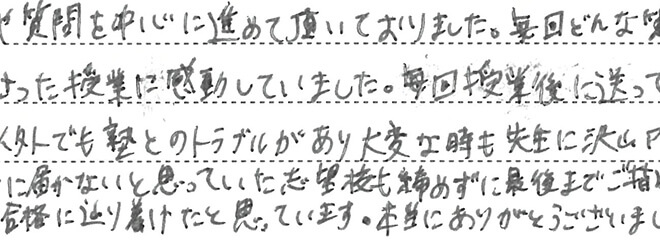 質問を中心に進めて頂いておりました。毎回どんな質
った授業に感動していました。毎回授業後に送って
以外でも塾とのトラブルがあり大変な時も先生に沢山
に届かないと思っていた志望校も諦めずに最後までご指
合格に辿り着けたと思っています。本当にありがとうございまし